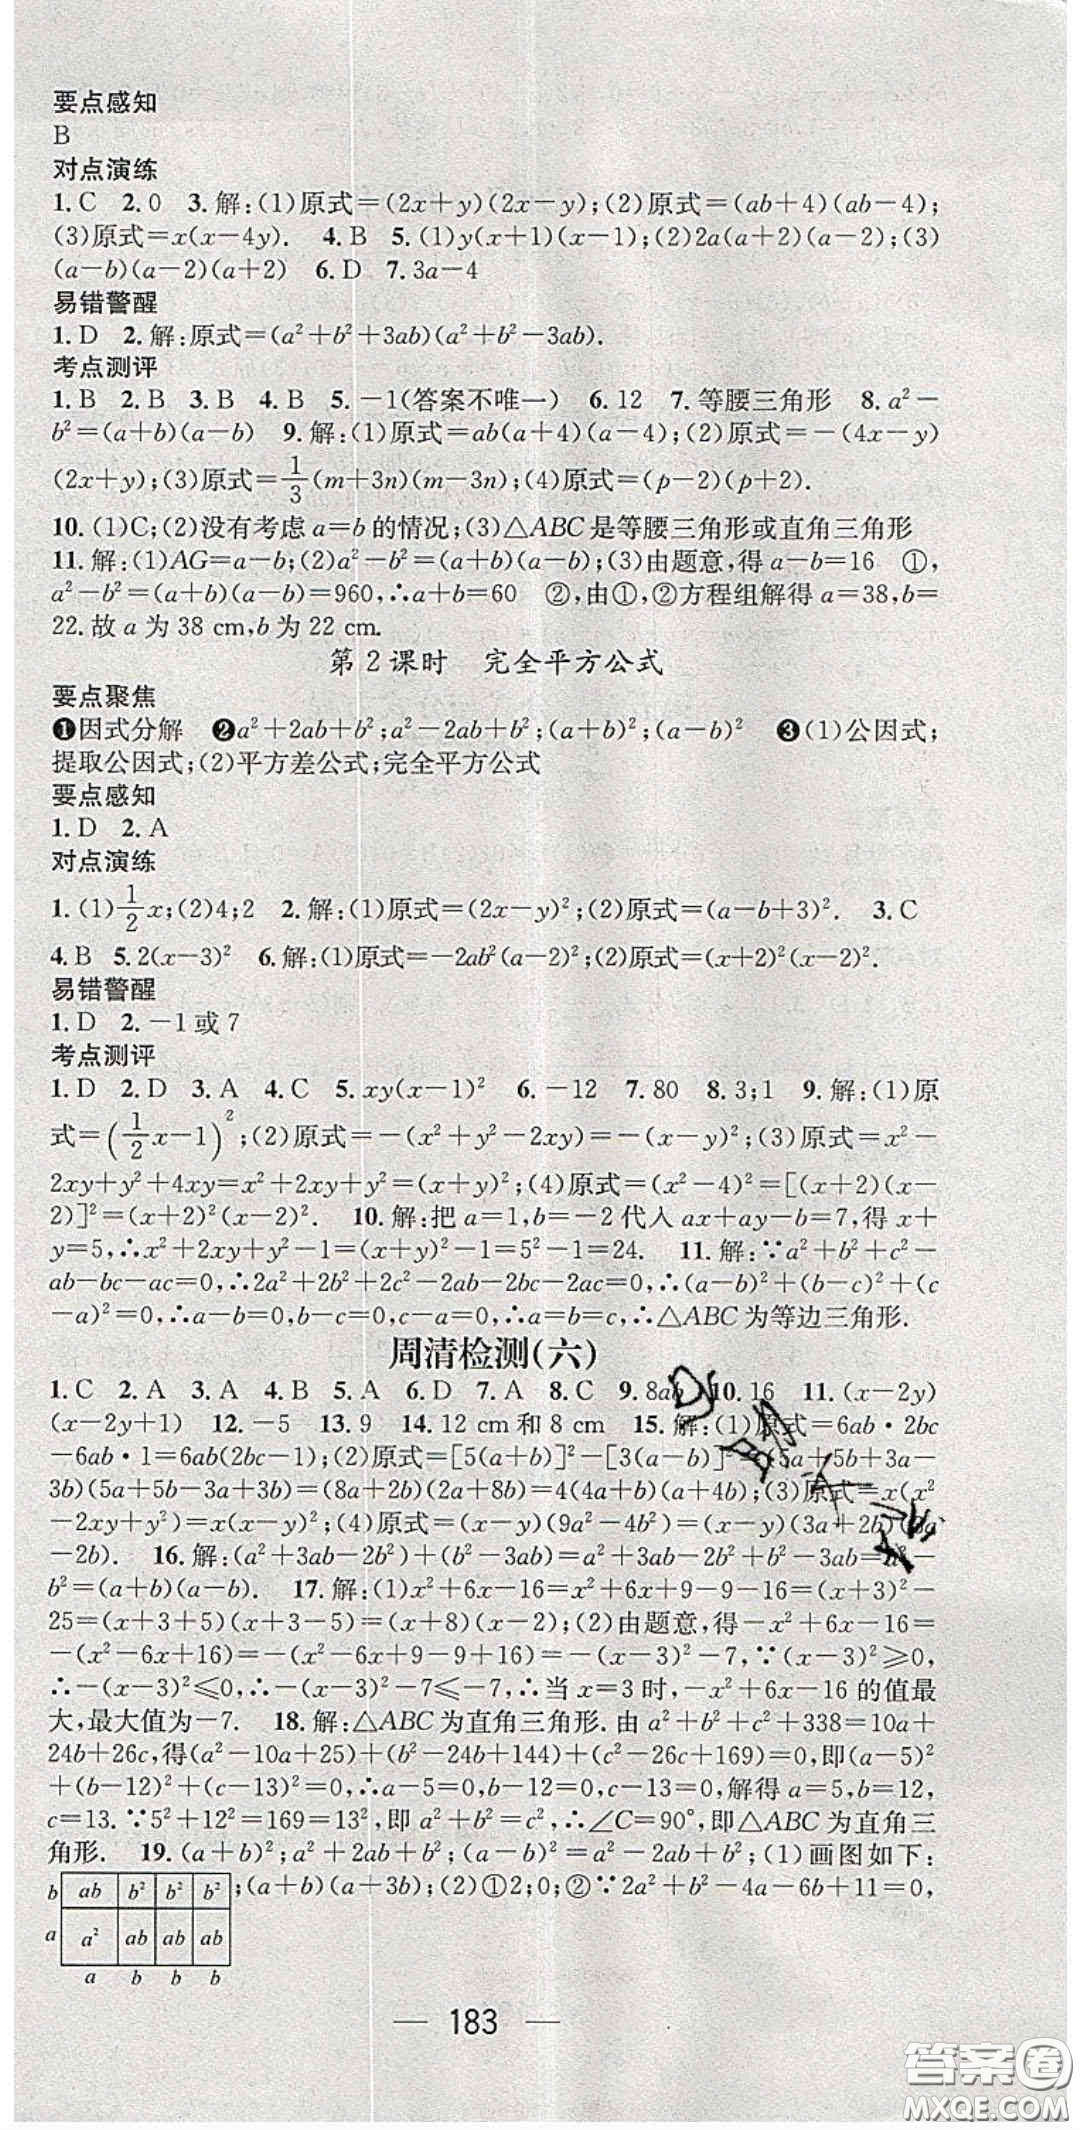 要点感知
B
对点演练
1.C 2.0 3.解:(1)原式=(2x+y)(2x-y);(2)原式=(ab+4)(ab-4);
(3)原式=x(x-4y). 4.B 5.(1)y(x+1)(x-1);(2)2a(a+2)(a-2);(3)
(a-b)(a-2)(a+2) 6.D 7.3a-4
易错警醒
1.D 2.解:原式=(a²+b²+3ab)(a²+b²-3ab).
考点测评
1.B 2.B 3.B 4.B 5.-1(答案不唯一) 6.12 7.等腰三角形 8.a²-
b²=(a+b)(a-b) 9.解:(1)原式=ab(a+4)(a-4);(2)原式=-(4x-y)
(2x+y);(3)原式=1/3(m+3n)(m-3n);(4)原式=(p-2)(p+2).
10.(1)C;(2)没有考虑a=b的情况;(3)△ABC是等腰三角形或直角三角形
11.解:(1)AG=a-b;(2)a²-b²=(a+b)(a-b);(3)由题意,得a-b=16 ①,
a²-b²=(a+b)(a-b)=960,∴a+b=60 ②,由①,②方程组解得a=38,b=
22.故a为38 cm,b为22 cm.
第2课时 完全平方公式
要点聚焦
❶因式分解 ❷a²+2ab+b²;a²-2ab+b²;(a+b)²;(a-b)² ❸(1)公因式;
提取公因式;(2)平方差公式;完全平方公式
要点感知
1.D 2.A
对点演练
1.(1)1/2x;(2)4;2 2.解:(1)原式=(2x-y)²;(2)原式=(a-b+3)². 3.C
4.B 5.2(x-3)² 6.解:(1)原式=-2ab²(a-2)²;(2)原式=(x+2)²(x-2)².
易错警醒
1.D 2.-1或7
考点测评
1.D 2.D 3.A 4.C 5.xy(x-1)² 6.-12 7.80 8.3;1 9.解:(1)原
式=(1/2x-1)²;(2)原式=-(x²+y²-2xy)=-(x-y)²;(3)原式=x²-
2xy+y²+4xy=x²+2xy+y²=(x+y)²;(4)原式=(x²-4)²=[(x+2)(x-
2)]²=(x+2)²(x-2)². 10.解:把a=1,b=-2代入ax+ay-b=7,得x+
y=5,∴x²+2xy+y²-1=(x+y)²-1=5²-1=24. 11.解:∵a²+b²+c²-
ab-bc-ac=0,∴2a²+2b²+2c²-2ab-2bc-2ac=0,∴(a-b)²+(b-c)²+(c
-a)²=0,∴a-b=0,b-c=0,c-a=0,∴a=b=c,∴△ABC为等边三角形.
周清检测(六)
1.C 2.A 3.A 4.B 5.A 6.D 7.A 8.C 9.8ab 10.16 11.(x-2y)
(x-2y+1) 12.-5 13.9 14.12 cm和8 cm 15.解:(1)原式=6ab·2bc
-6ab·1=6ab(2bc-1);(2)原式=[5(a+b)]²-[3(a-b)]²=(5a+5b+3a-
3b)(5a+5b-3a+3b)=(8a+2b)(2a+8b)=4(4a+b)(a+4b);(3)原式=x(x²
-2xy+y²)=x(x-y)²;(4)原式=(x-y)(9a²-4b²)=(x-y)(3a+2b)(3a
-2b). 16.解:(a²+3ab-2b²)+(b²-3ab)=a²+3ab-2b²+b²-3ab=a²-
b²=(a+b)(a-b). 17.解:(1)x²+6x-16=x²+6x+9-9-16=(x+3)²-
25=(x+3+5)(x+3-5)=(x+8)(x-2);(2)由题意,得-x²+6x-16=
-(x²-6x+16)=-(x²-6x+9-9+16)=-(x-3)²-7,∵(x-3)²≥0,
∴-(x-3)²≤0,∴-(x-3)²-7≤-7,∴当x=3时,-x²+6x-16的值最
大,最大值为-7. 18.解:△ABC为直角三角形.由a²+b²+c²+338=10a+
24b+26c,得(a²-10a+25)+(b²-24b+144)+(c²-26c+169)=0,即(a-5)²
+(b-12)²+(c-13)²=0,∴a-5=0,b-12=0,c-13=0,解得a=5,b=12,
c=13.∵5²+12²=169=13²,即a²+b²=c²,∴∠C=90°,即△ABC为直角三
角形. 19.(a+b)²;a²+2ab+b²;(a-b)²=a²-2ab+b²;(1)画图如下:
b ab b² b² b² ;(a+b)(a+3b);(2)①2;0;②∵2a²+b²-4a-6b+11=0,
a a² ab ab ab
a b b b
— 183 —
答案圈
MXQE.COM